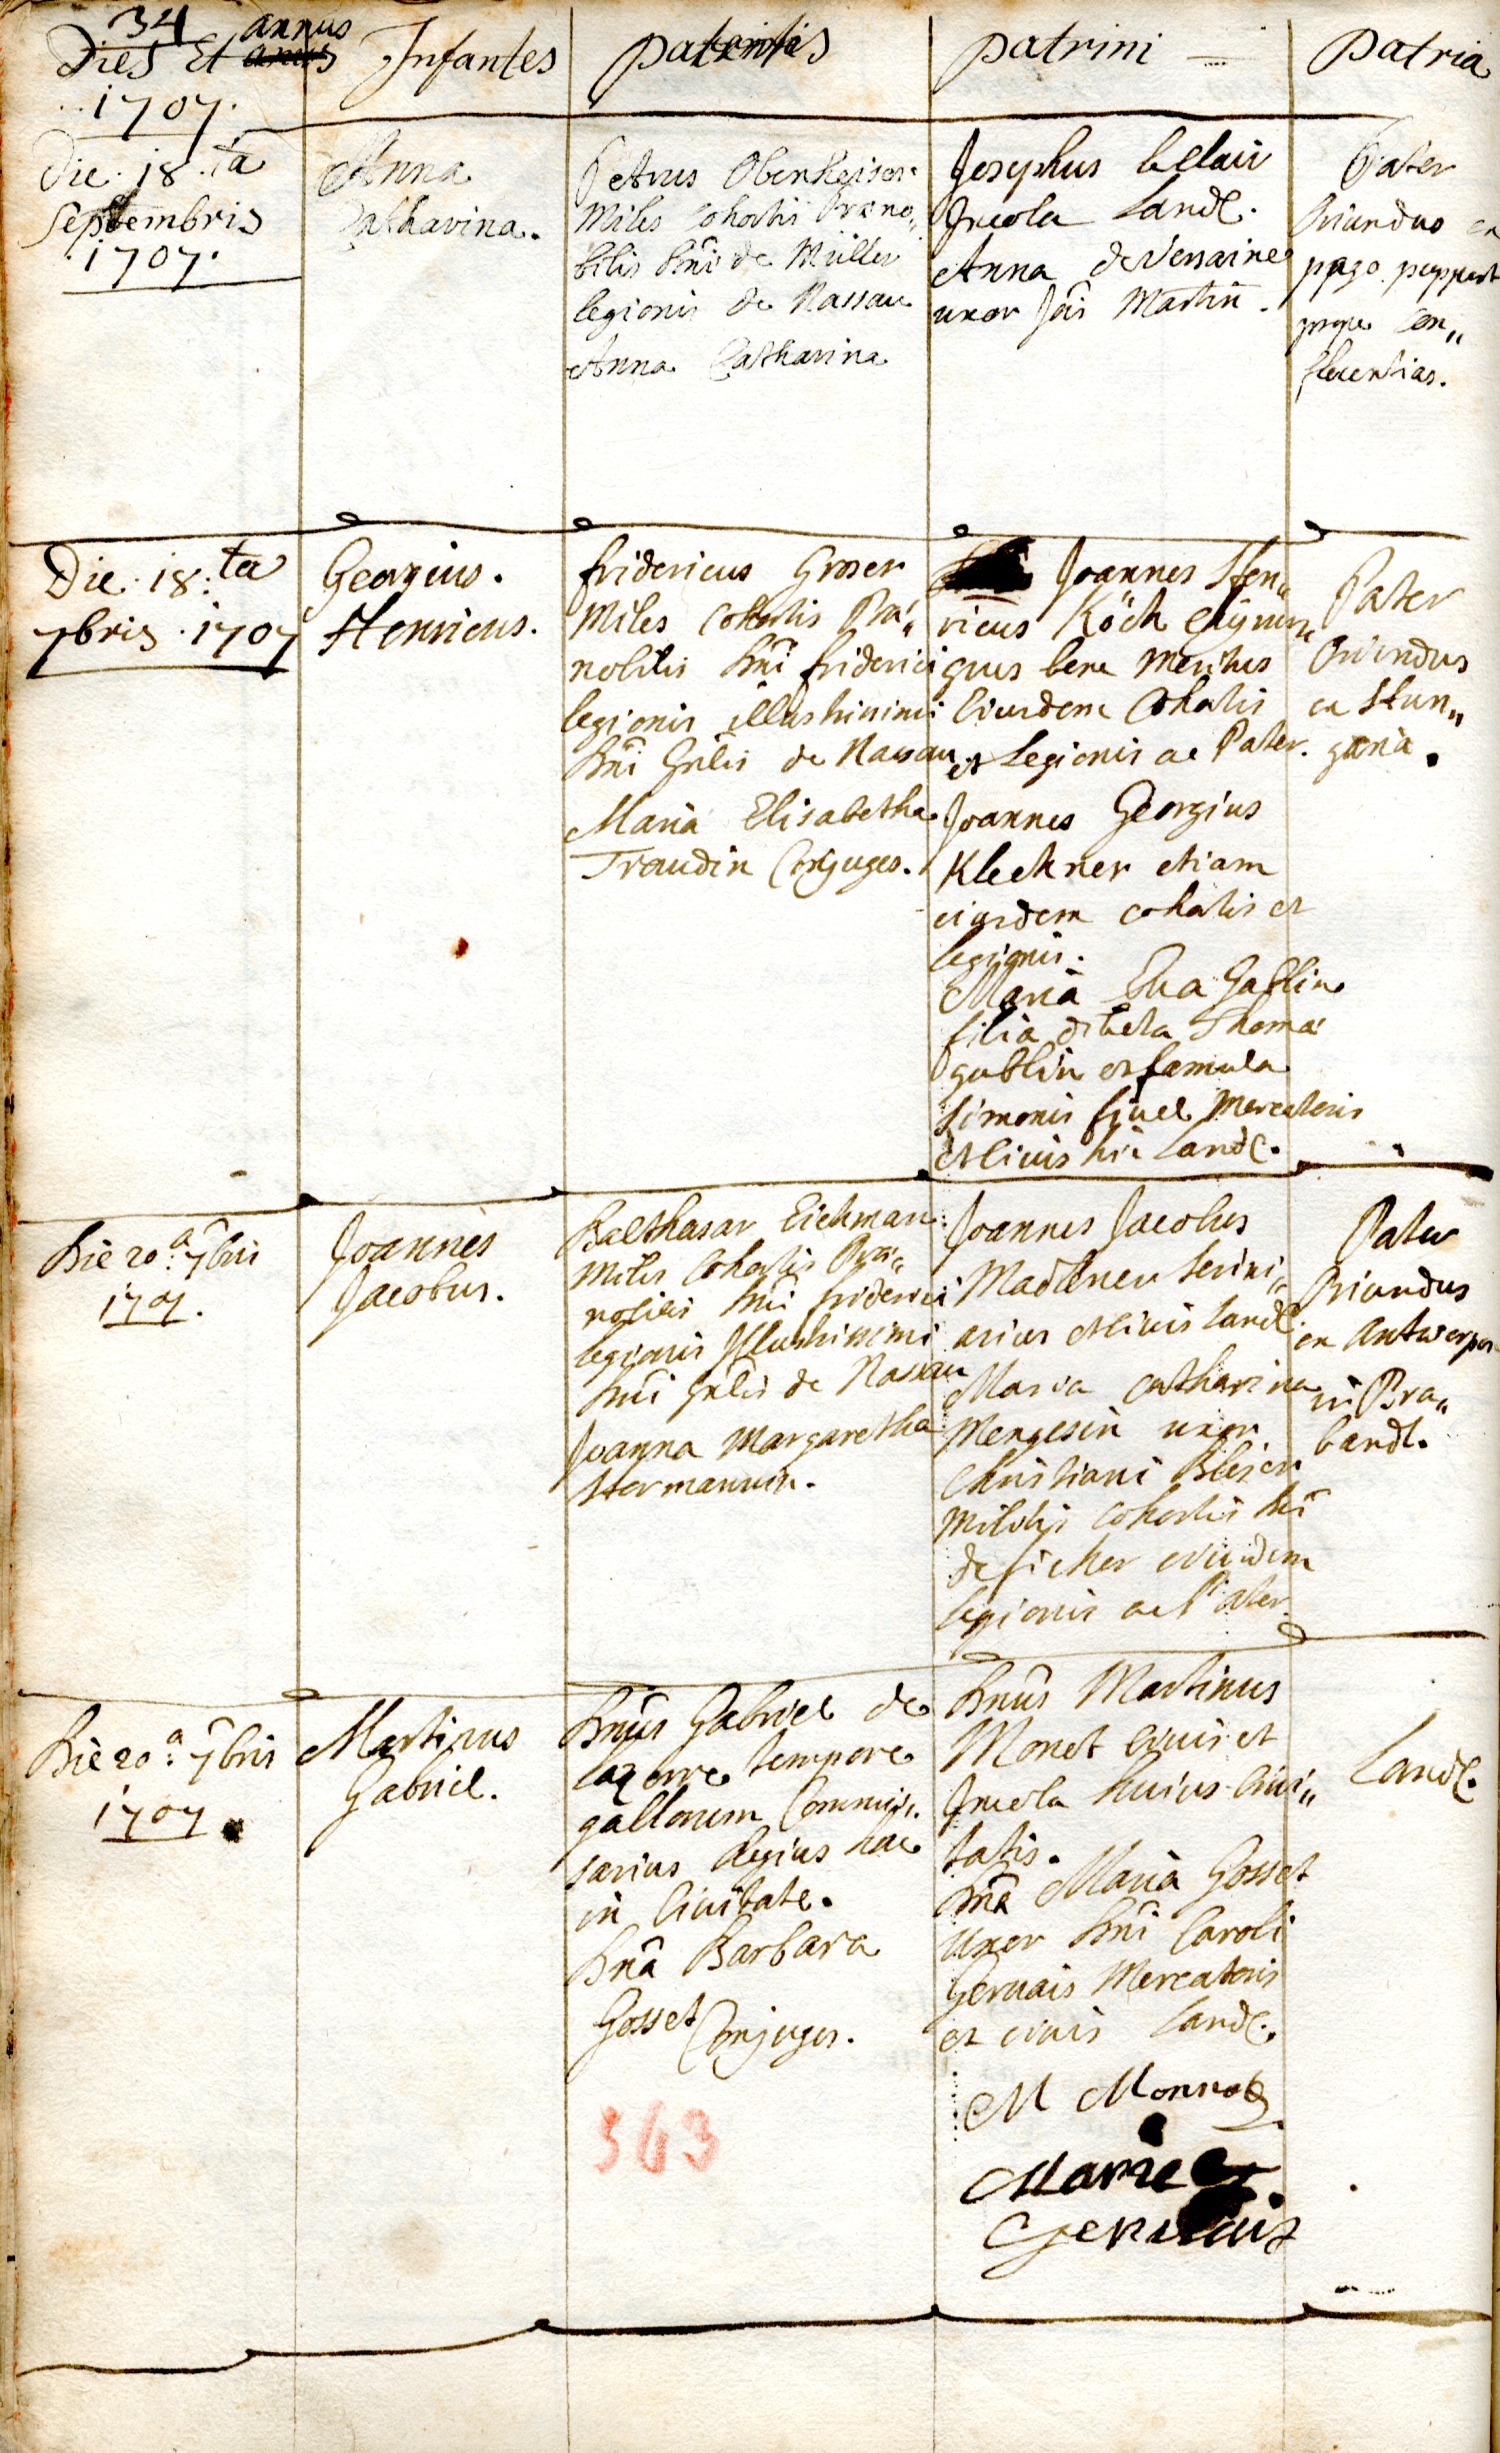 34
Dies Et annus
1707.
Infantes
parentes
patrini
patria
Die. 18.ta
Septembris
1707.
Anna
Catharina.
Petrus Obenheiser
Miles cohortis Præno„
bilis Dni de Müller
legionis de Nassau
Anna Catharina
Josephus belair
Incola Land.
Anna de Versaine
uxor Jois Martin.
Pater
Oriundus ex
pago
prope Con„
fluentias.
Die. 18.ta
7bris. 1707
Georgius.
Henricus.
fridericus Groser
Miles Cohortis Præ„
nobilis Dni friderici
legionis illustrissimi
Dni Gnlis de Nassau
Maria Elisabetha
Traudin Conjuges.
Joannes Hen„
ricus Köch
gus bene Meritus
Eiusdem Cohortis
et Legionis ac Pater.
Joannes Georgius
Kleckner etiam
eiusdem cohortis et
legionis.
Maria Eva Gablin
filia Thomæ
gablin et famula
Simonis Mercatoris
et Civis hic Land.
Pater
Oriundus
ex Hun„
garia.
Die 20.a 7bris
1707.
Joannes
Jacobus.
Balthasar Eichman
Miles Cohortis Præ„
nobilis Dni friderici
legionis Illustrissimi
Dni Gnlis de Nassau
Joanna Margaretha
Hermannin.
Joannes Jacobus
Madlener Scrini„
arius et Civis Land.
Maria Catharina
Mengesin uxor
Christiani Bleser
Militis Cohortis Dni
de eiusdem
legionis ac Pater.
Pater
Oriundus
ex Antwerpen
in Bra„
band.
Die 20.a 7bris
1707.
Martinus
Gabriel.
Dnus Gabriel de
tempore
gallorum Commis„
sarius Regius hac
in Civitate.
Dna Barbara
Gosset Conjuges.
Dnus Martinus
Monet Civis et
Incola huius Civi„
tatis.
Dna Maria Gosset
Uxor Dni Caroli
Gervais Mercatoris
et civis Land.
Land.
M Monnot
Marie
Gervais
343